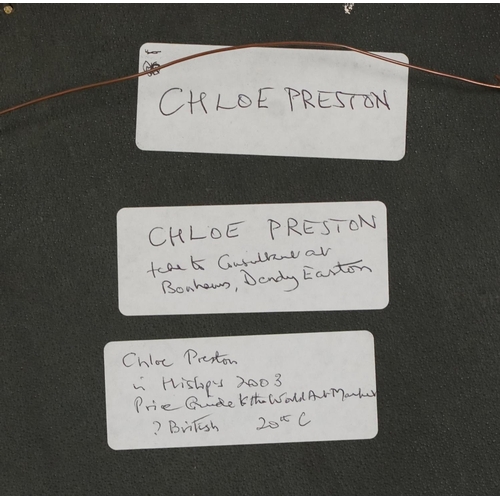 CHLOE PRESTON
CHLOE PRESTON
talk to Consultant at
Bonhams, Dendy Easton
Chloe Preston
in Hislop's 2003
Price Guide to the World Art Market
? British 20th C